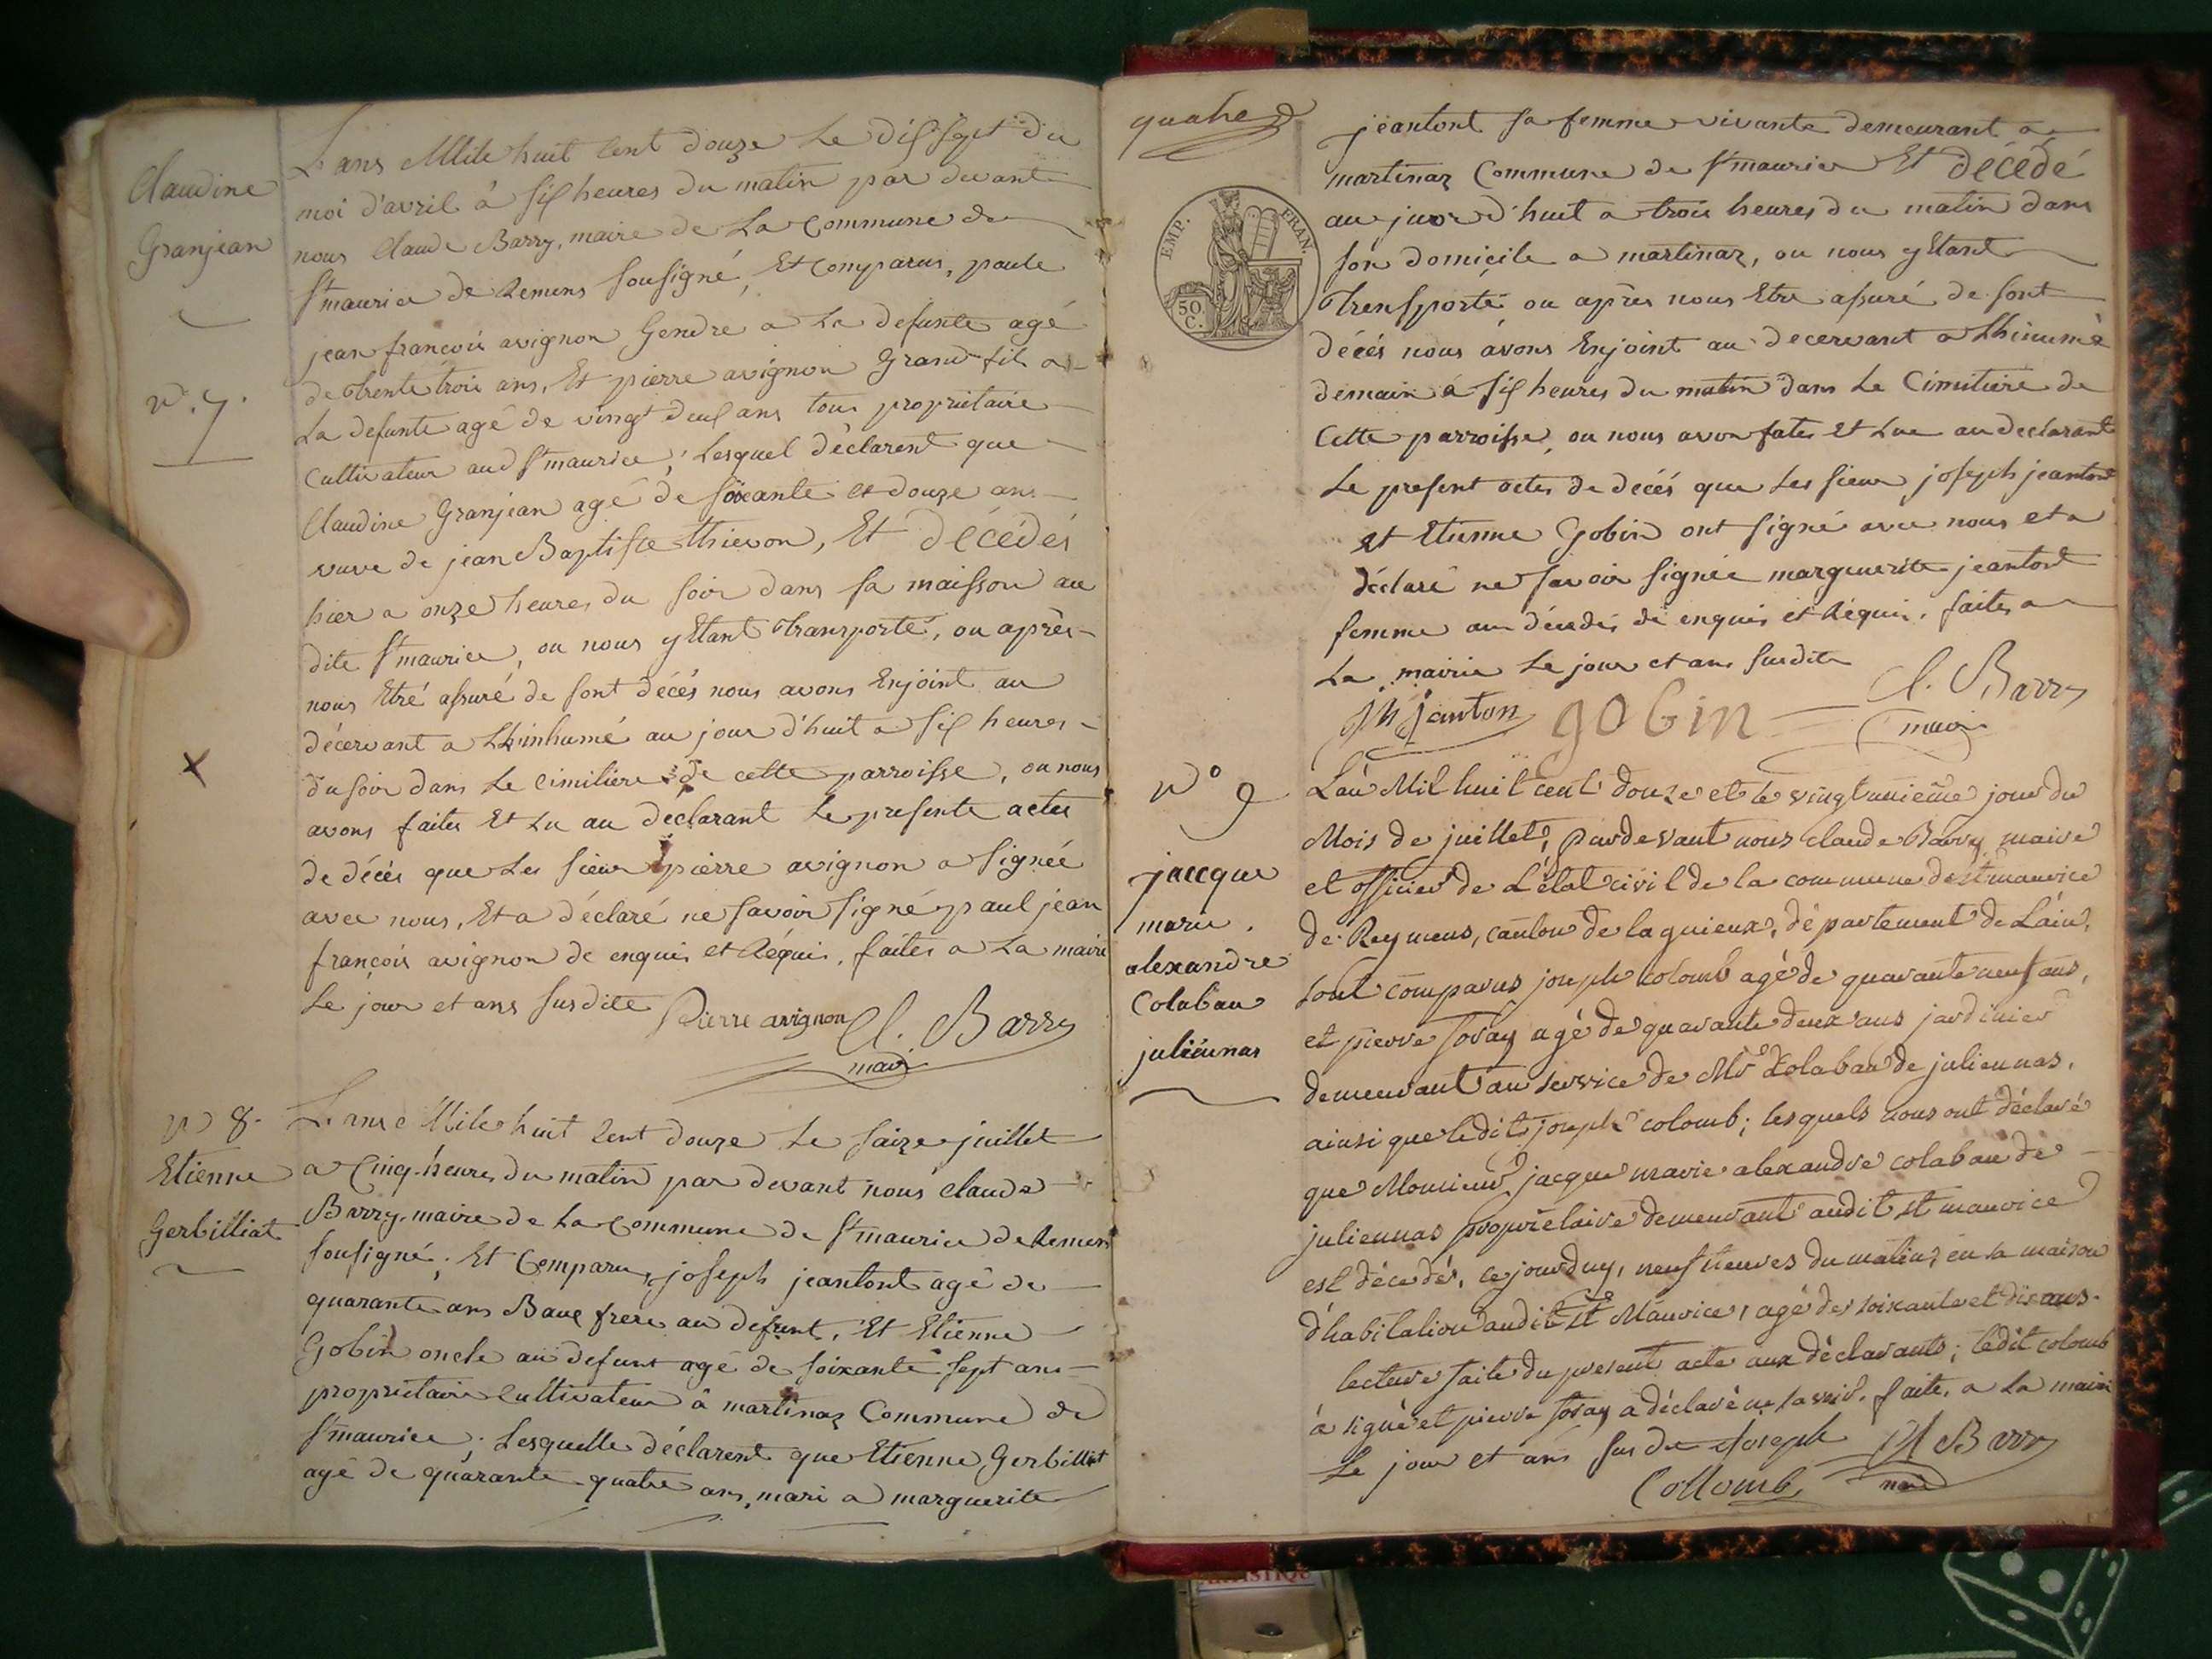 Claudine
Granjean
n°. 7.
L'ans Mile huit cent douze Le dif sept du
moi d'avril à sif heures du matin par devant
nous Claude Barry, maire de La Commune de
St maurice de Remens sousigné, Et Comparus, paule
jean françois avignon Gendre a La defunte agé
de Trente trois ans, Et pierre avignon Grand fil a
La defunte agé de vingt deuf ans tous propriétaire
Cultivateur aud St maurice; Lesquel déclarent que
Claudine Granjean agé de soixante et douze ans
veuve de jean Baptiste thievon, Et Décédés
hier a onze heures du soir dans sa maisson au
dite St maurice, ou nous y Etant Transporté, ou après
nous Etré assuré de sont décés nous avons Enjoint au
décervant a Lhinhumé au jour d'huit a sif heures
du soir dans Le Cimitiere de cette parroisse, ou nous
avons faites Et Lu au déclarant Le presente actes
de décés que Les sieur pierre avignon a signéé
avec nous, Et a déclaré ne savoir signé paul jean
françois avignon de enquis et Réquis, faites a La mairi
Le jour et ans susdite Pierre avignon Cl. Barry
mair
n° 8.
Etienne
Gerbilliat
L'ans Mile huit Cent douze Le saize juillet
a Cinq heures du matin par devant nous claude
Barry, maire de La Commune de St maurice de Remens
sousigné; Et Comparu, joseph jeantont agé de
quarante ans Bauf frere au defunt, Et Etienne
Gobin oncle au defunt agé de soixante sept ans
propriétaire Cultivateur à martinaz Commune de
St maurice; Lesquelle déclarent que Etienne Gerbilliat
agé de quarante quatre ans, mari a marguerite
quatre
EMP. FRAN.
50 C.
jeantont sa femme vivante demeurant a
martinaz Commune de St maurice Et Décédé
au jour d'huit a trois heures du matin dans
son domicile a martinaz, ou nous y Etant
Trensporté ou après nous Etre assuré de sont
décés nous avons Enjoint au decervant a Lhinumé
demain a sif heures du matin dans Le Cimitiere de
Cette parroisse, ou nous avon fates Et Lue au declarant
Le present actes de décés que Les sieur joseph jeantont
et Etienne Gobin ont signé avec nous et a
déclaré ne savoir signée marguerite jeantont
femme au décédés de enquis et Réquis. faites a
La mairie Le jour et ans susdite
Jh Janton gobin Cl. Barry
mair
N° 9
jaccque
marie.
alexandre
Colabau
juliénnas
L'an Mil huit cent douze et le vingt unieme jour du
Mois de juillet, pardevant nous claude Barry maire
et officier de L'état civil de la commune de st maurice
de Reymens, canton de lagnieux, département de L'ain,
sont comparus joseph colomb agé de quarante neuf ans,
et pierre foray agé de quarante deux ans jardinier
demeurant au service de Mr Colabau de juliennas,
ainsi que ledit joseph colomb; lesquels nous ont déclaré
que Monsieur jacque marie alexandre colabau de
juliennas proprietaire demeurant audit st maurice
est décedés, ce jourduy, neuf heures du matin, en sa maison
d'habitation audit St Maurice, agé de soixante et dix ans.
lecture faite du present acte aux déclarants; ledit colomb
à signé et pierre foray a déclaré ne savoir. faite, a La mairi
Le jour et ans sus dit Joseph Cl Barry
Collomb mair